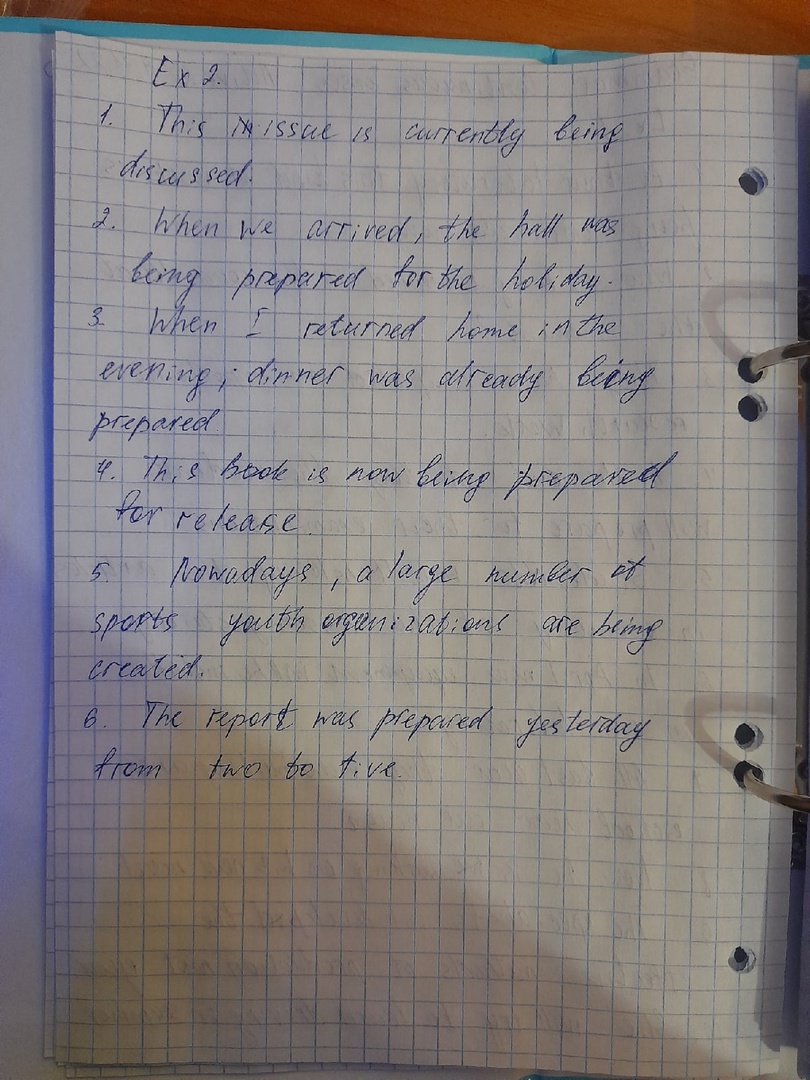 Ex 2.
1. This issue is currently being
discussed.
2. When we arrived, the hall was
being prepared for the holiday.
3. When I returned home in the
evening, dinner was already being
prepared
4. This book is now being prepared
for release.
5. Nowadays, a large number of
sports youth organizations are being
created.
6. The report was prepared yesterday
from two to five.